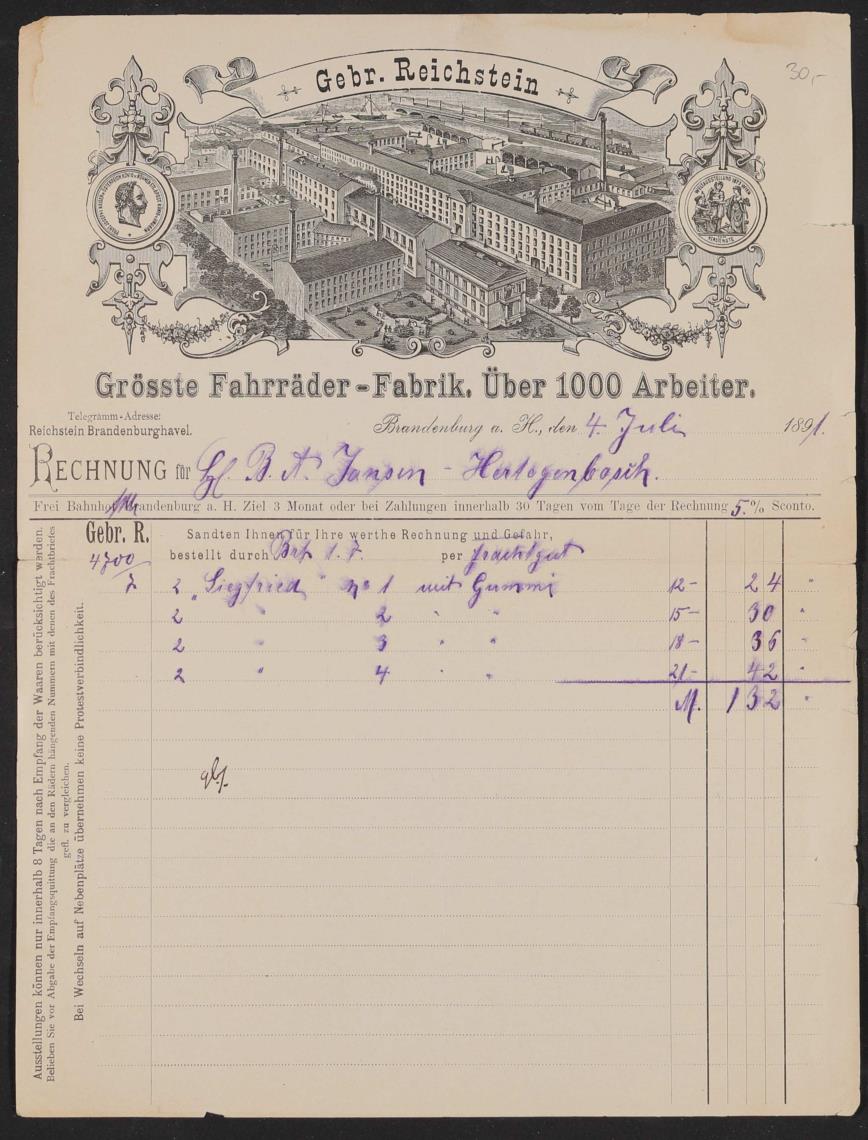 30,-
Gebr. Reichstein
FRANZ JOSEPH I KAISER V. ÖSTERREICH KÖNIG V. BÖHMEN ETC. APOST. KÖNIG V. UNGARN
WELTAUSSTELLUNG 1873 WIEN
VERDIENSTE
Grösste Fahrräder-Fabrik. Über 1000 Arbeiter.
Telegramm-Adresse:
Reichstein Brandenburghavel.
Brandenburg a. H., den 4. Juli 1891.
RECHNUNG für B. A. Jansen - Hertogenbosch.
Frei Bahnhof Brandenburg a. H. Ziel 3 Monat oder bei Zahlungen innerhalb 30 Tagen vom Tage der Rechnung 5.% Sconto.
Gebr. R. Sandten Ihnen für Ihre werthe Rechnung und Gefahr,
4700/ bestellt durch 1. 7. per Frachtgut
7 2 "Siegfried" No 1 mit Gummi 12- 24 "
2 " 2 " " 15- 30 "
2 " 3 " " 18- 36 "
2 " 4 " " 21- 42 "
M. 132 "
Ausstellungen können nur innerhalb 8 Tagen nach Empfang der Waaren berücksichtigt werden.
Belieben Sie vor Abgabe der Empfangsquittung die an den Rädern hängenden Nummern mit denen des Frachtbriefes
gefl. zu vergleichen.
Bei Wechseln auf Nebenplätze übernehmen keine Protestverbindlichkeit.